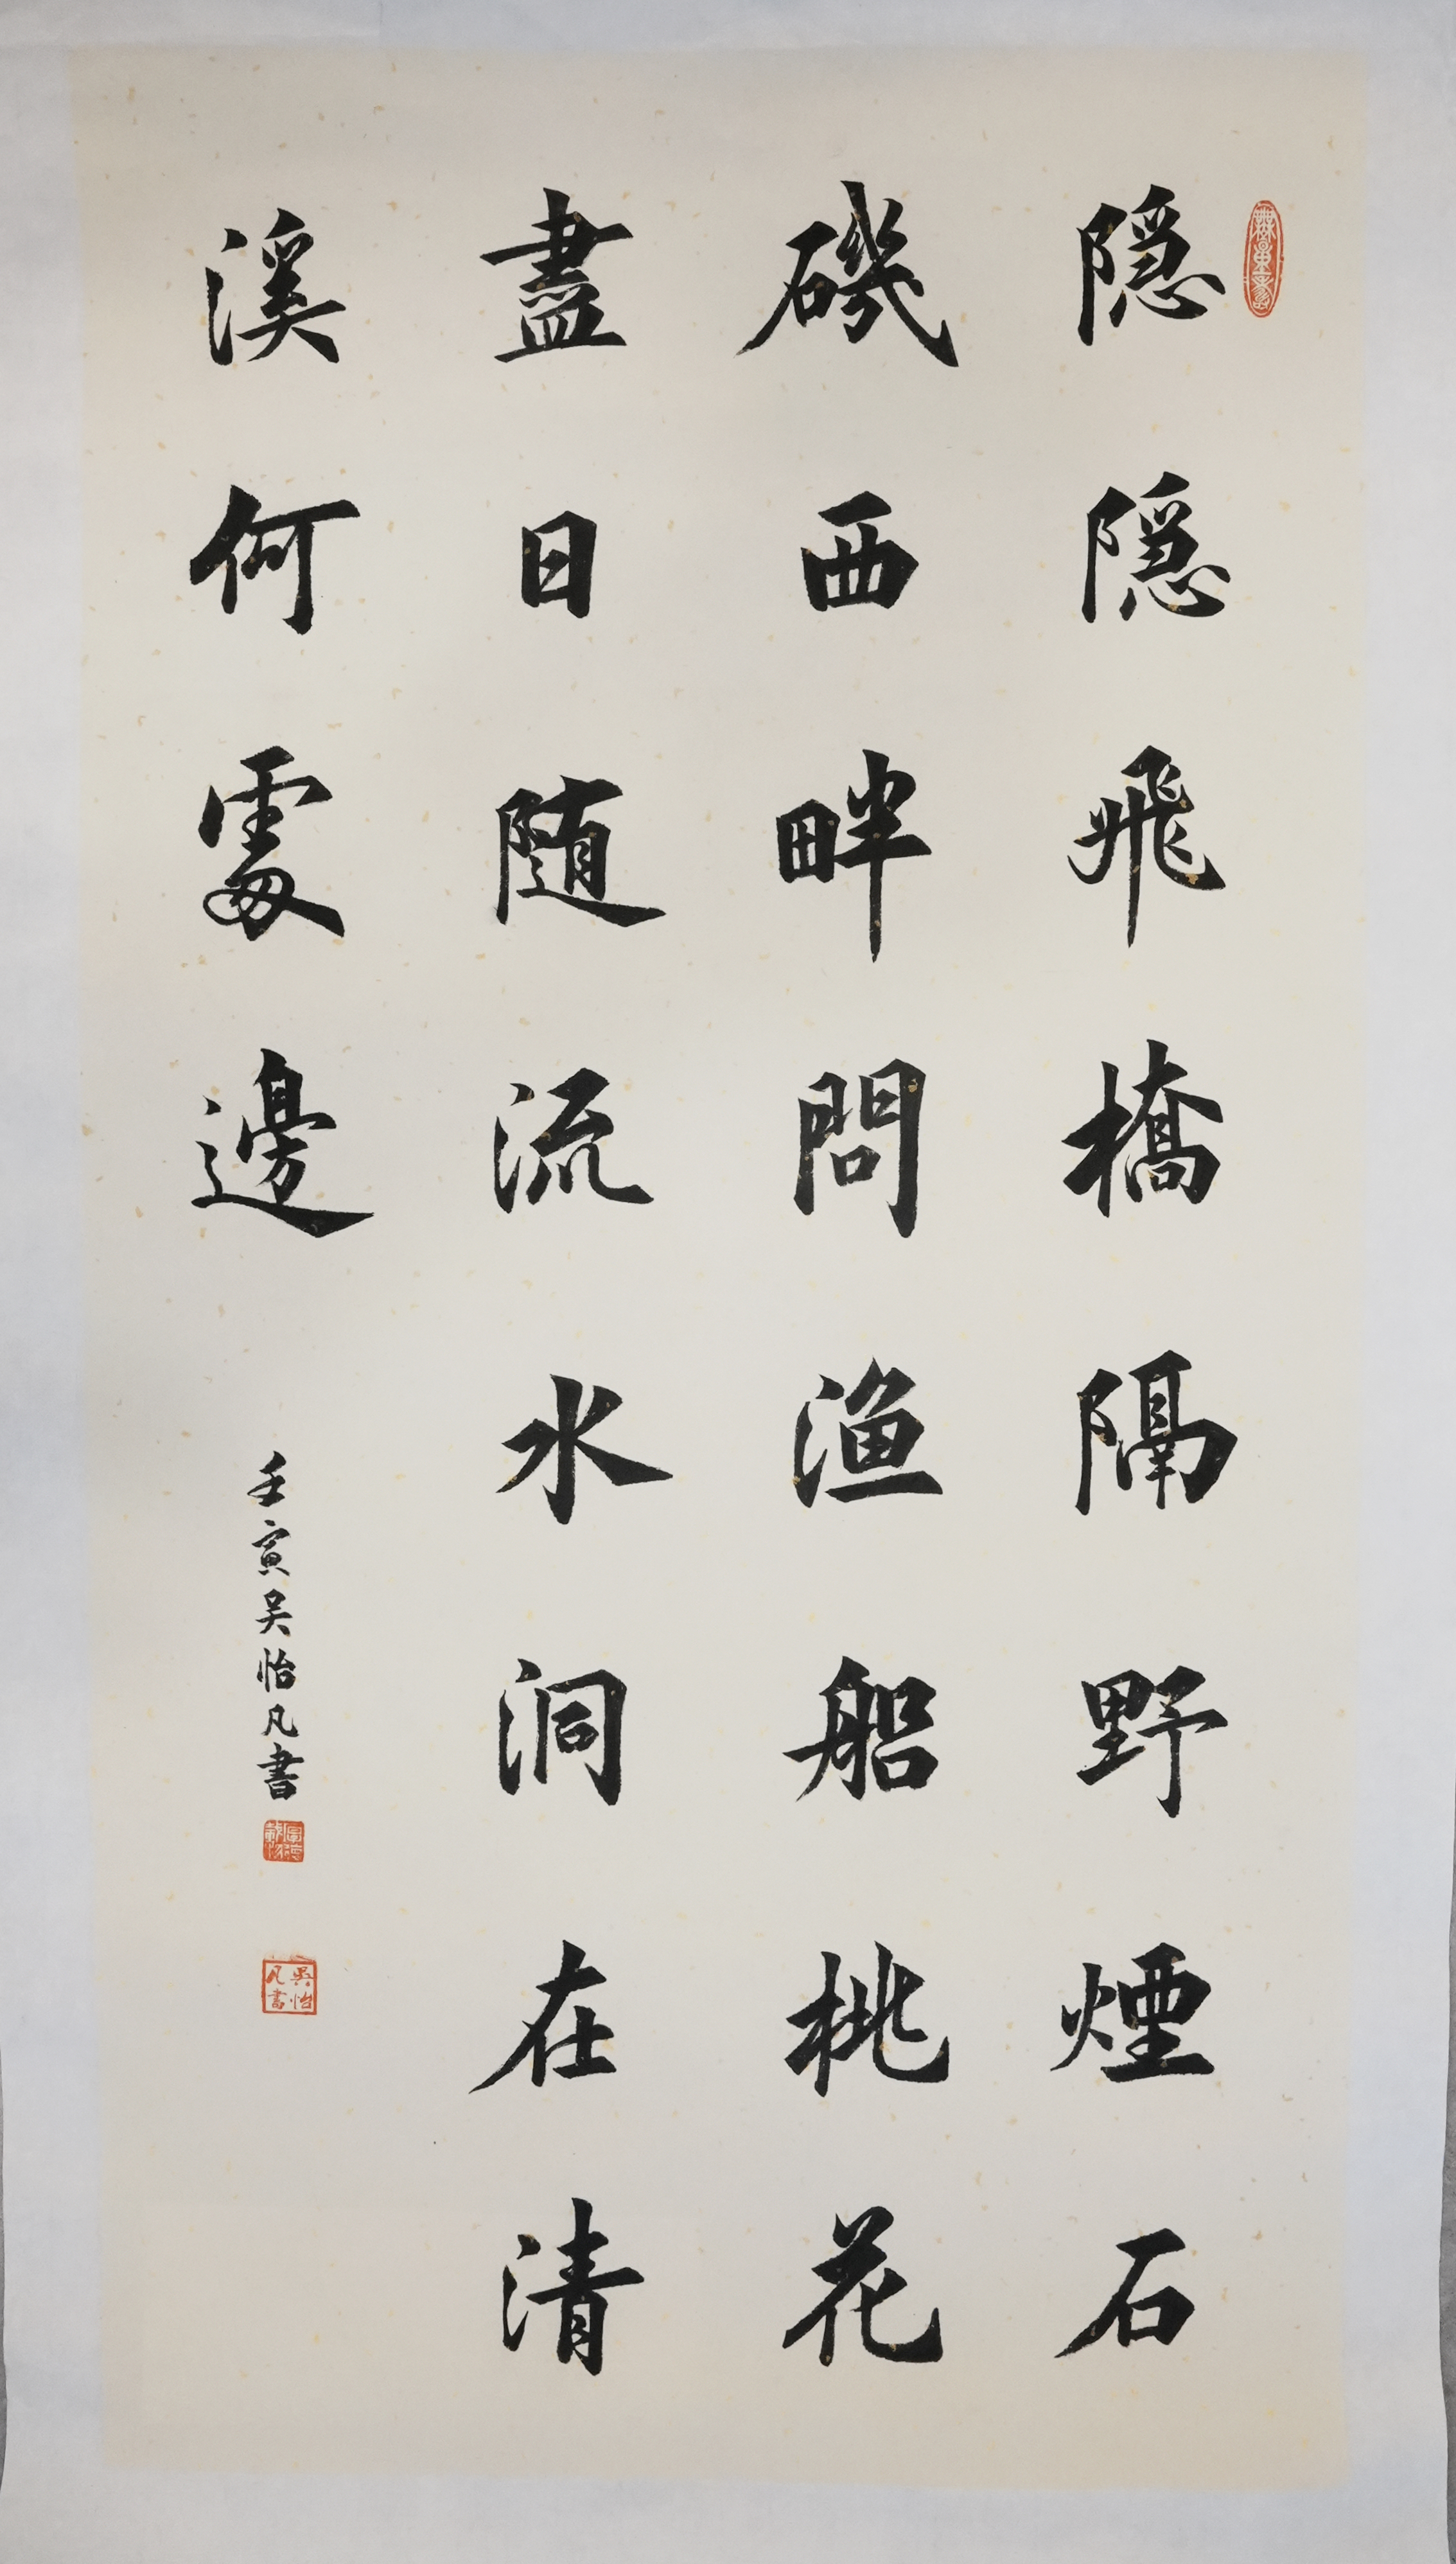 隠隠飛橋隔野煙石
磯西畔問渔船桃花
盡日随流水洞在清
溪何處邊
壬寅吴怡凡書
吳怡凡書